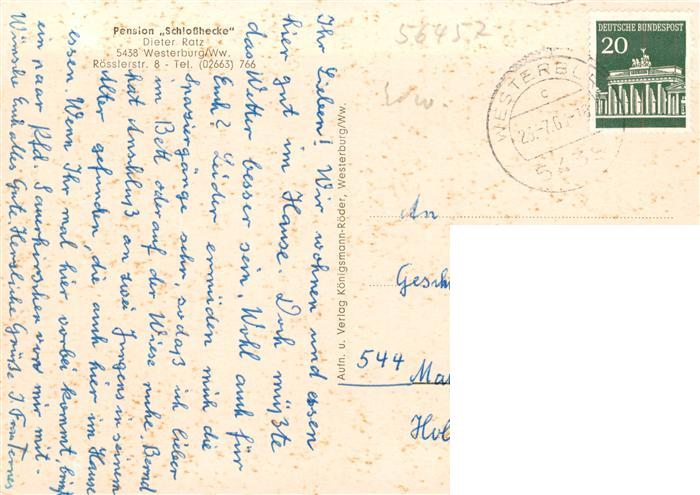 Pension „Schloßhecke"
Dieter Ratz
5438 Westerburg/Ww.
Rösslerstr. 8 - Tel. (02663) 766
Ihr Lieben! Wir wohnen und essen
hier gut im Hause. Doch müßte
das Wetter besser sein. Wohl auch für
Euch? Leider ermüden mich die
Spaziergänge sehr, sodaß ich lieber
im Bett oder auf der Wiese ruhe. Bernd
hat Anschluß an zwei Jungens in seinem
Alter gefunden, die auch hier im Hause
essen. Wenn Ihr mal hier vorbei kommt, bringt
ein paar Pfd. Sauerkirschen von mir mit-
Wünsche Euch alles Gute Herzliche Grüße
Aufn. u. Verlag Königsmann-Röder, Westerburg/Ww.
56457
DEUTSCHE BUNDESPOST
20
WESTERBU
c
543
An
Gesch
544 Ma
Hol